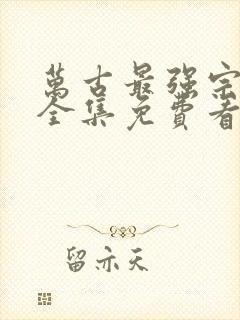 萬古最强宗
全集免費看
留亦天